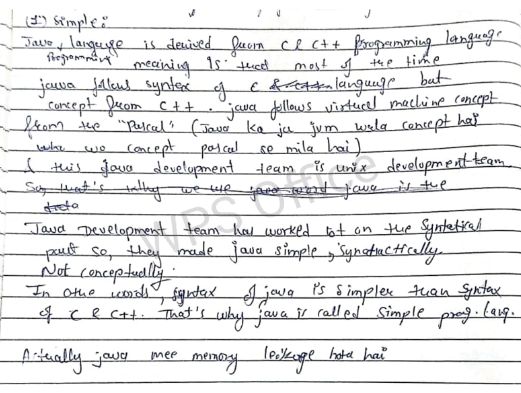 (1) Simple :
Java language is derived from C & C++ programming language
programming meaning is that most of the time
java follows syntax of C & C++ language but
concept from C++. java follows virtual machine concept
from the "Pascal" (Java ka ju jvm wala concept hai
who wo concept pascal se mila hai)
& this java development team is unix development team
So, that's why we use java word java is the
Java Development team has worked lot on the Syntetical
part so, they made java simple, Synatractically.
Not conceptually.
In othe words, syntax of java is simpler than syntax
of C & C++. That's why java is called simple prog. lang.
Actually java mee memory leokage hota hai
WPS Office